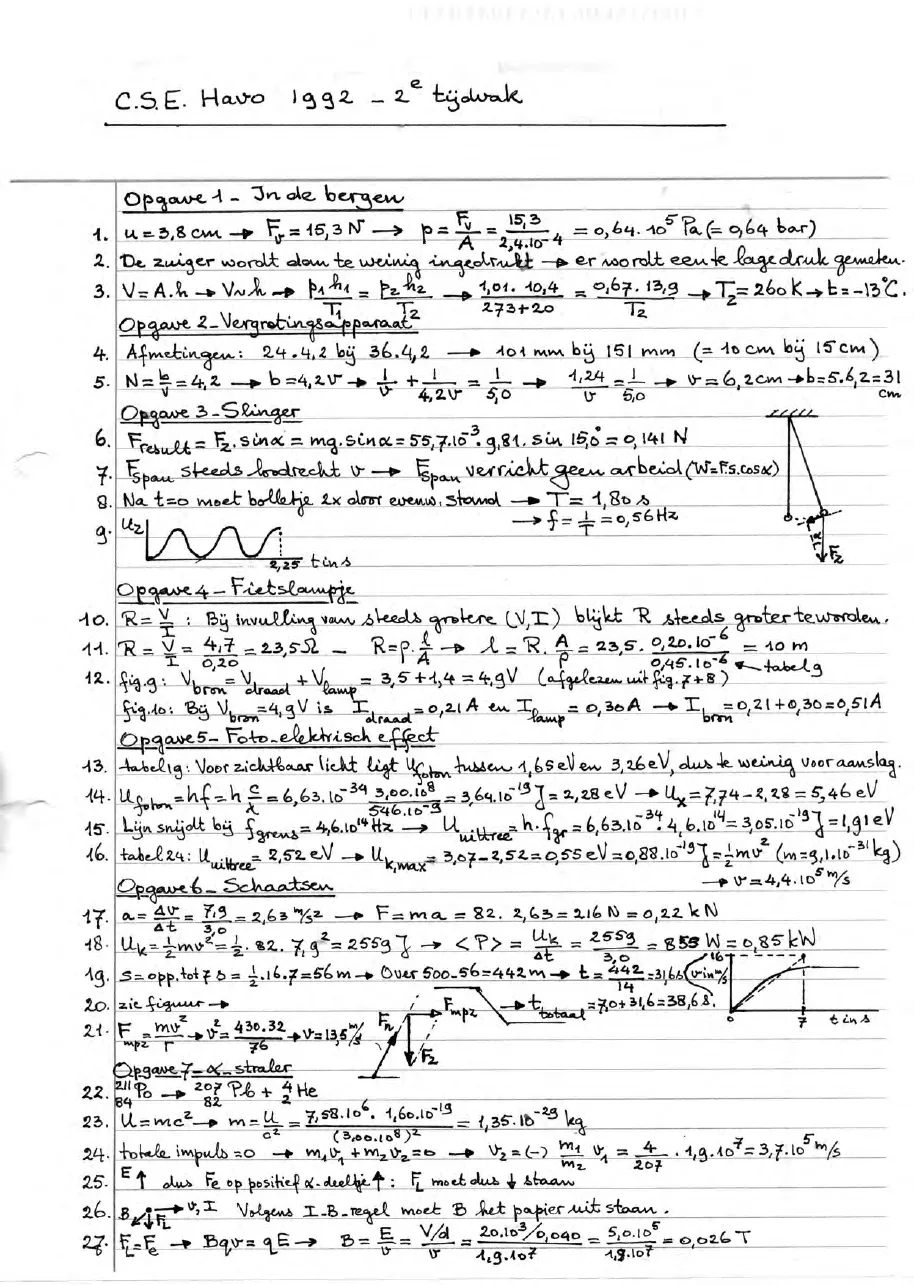 C.S.E. Havo 1992 - 2e tijdvak
Opgave 1 - In de bergen
1. u = 3,8 cm → Fv = 15,3 N → p = Fv/A = 15,3/2,4.10^-4 = 0,64.10^5 Pa (= 0,64 bar)
2. De zuiger wordt dan te weinig ingedrukt → er wordt een te lage druk gemeten.
3. V = A.h → V~h → p1h1/T1 = p2h2/T2 → 1,01.10,4/273+20 = 0,67.13,9/T2 → T2 = 260 K → t = -13°C.
Opgave 2 - Vergrotingsapparaat
4. Afmetingen: 24.4,2 bij 36.4,2 → 101 mm bij 151 mm (= 10 cm bij 15 cm)
5. N = b/v = 4,2 → b = 4,2v → 1/v + 1/4,2v = 1/5,0 → 1,24/v = 1/5,0 → v = 6,2 cm → b = 5.6,2 = 31 cm
Opgave 3 - Slinger
6. Fresult = Fz.sinα = mg.sinα = 55,7.10^-3.9,81.sin 15,0° = 0,141 N
7. Fspan steeds loodrecht v → Fspan verricht geen arbeid (W=Fs.cosα)
8. Na t=0 moet bolletje 2x door evenw. stand → T = 1,80 s
→ f = 1/T = 0,56 Hz
α Fz
9. Uz
2,25 t in s
Opgave 4 - Fietslampje
10. R = V/I : Bij invulling van steeds grotere (V,I) blijkt R steeds groter te worden.
11. R = V/I = 4,7/0,20 = 23,5 Ω - R = ρ.l/A → l = R.A/ρ = 23,5.0,20.10^-6/0,45.10^-6 = 10 m
tabel 9
12. fig.9: Vbron = Vdraad + Vlamp = 3,5 + 1,4 = 4,9 V (afgelezen uit fig. 7+8)
fig.10: Bij Vbron = 4,9 V is Idraad = 0,21 A en Ilamp = 0,30 A → Ibron = 0,21 + 0,30 = 0,51 A
Opgave 5 - Foto-elektrisch effect
13. tabel 19: Voor zichtbaar licht ligt Ufoton tussen 1,65 eV en 3,26 eV, dus te weinig voor aanslag.
14. Ufoton = hf = h c/λ = 6,63.10^-34.3,00.10^8/546.10^-9 = 3,64.10^-19 J = 2,28 eV → Ux = 7,74 - 2,28 = 5,46 eV
15. Lijn snijdt bij fgrens = 4,6.10^14 Hz → Uuittree = h.fgr = 6,63.10^-34.4,6.10^14 = 3,05.10^-19 J = 1,91 eV
16. tabel 24: Uuittree = 2,52 eV → Uk,max = 3,07 - 2,52 = 0,55 eV = 0,88.10^-19 J = ½mv² (m = 9,1.10^-31 kg)
→ v = 4,4.10^5 m/s
Opgave 6 - Schaatsen
17. a = Δv/Δt = 7,9/3,0 = 2,63 m/s² → F = ma = 82.2,63 = 216 N = 0,22 kN
18. Uk = ½mv² = ½.82.7,9² = 2559 J → <P> = Uk/Δt = 2559/3,0 = 853 W = 0,85 kW
19. s = opp. tot 7 s = ½.16.7 = 56 m → Over 500-56 = 442 m → t = 442/14 = 31,6 s
→ ttotaal = 7,0 + 31,6 = 38,6 s.
v in m/s 16 0 7 t in s
20. zie figuur →
Fn Fmpz Fz
21. Fmpz = mv²/r → v² = 430.32/76 → v = 13,5 m/s
Opgave 7 - α-straler
22. 211/84 Po → 207/82 Pb + 4/2 He
23. U = mc² → m = U/c² = 7,58.10^6.1,60.10^-19/(3,00.10^8)² = 1,35.10^-29 kg
24. totale impuls = 0 → m1v1 + m2v2 = 0 → v2 = (-) m1/m2 v1 = 4/207 . 1,9.10^7 = 3,7.10^5 m/s
25. E↑ dus Fe op positief α-deeltje ↑: FL moet dus ↓ staan
26. B FL v, I Volgens I-B-regel moet B het papier uit staan.
27. FL = Fe → Bqv = qE → B = E/v = V/d/v = 20.10^3/0,040/1,9.10^7 = 5,0.10^5/1,9.10^7 = 0,026 T